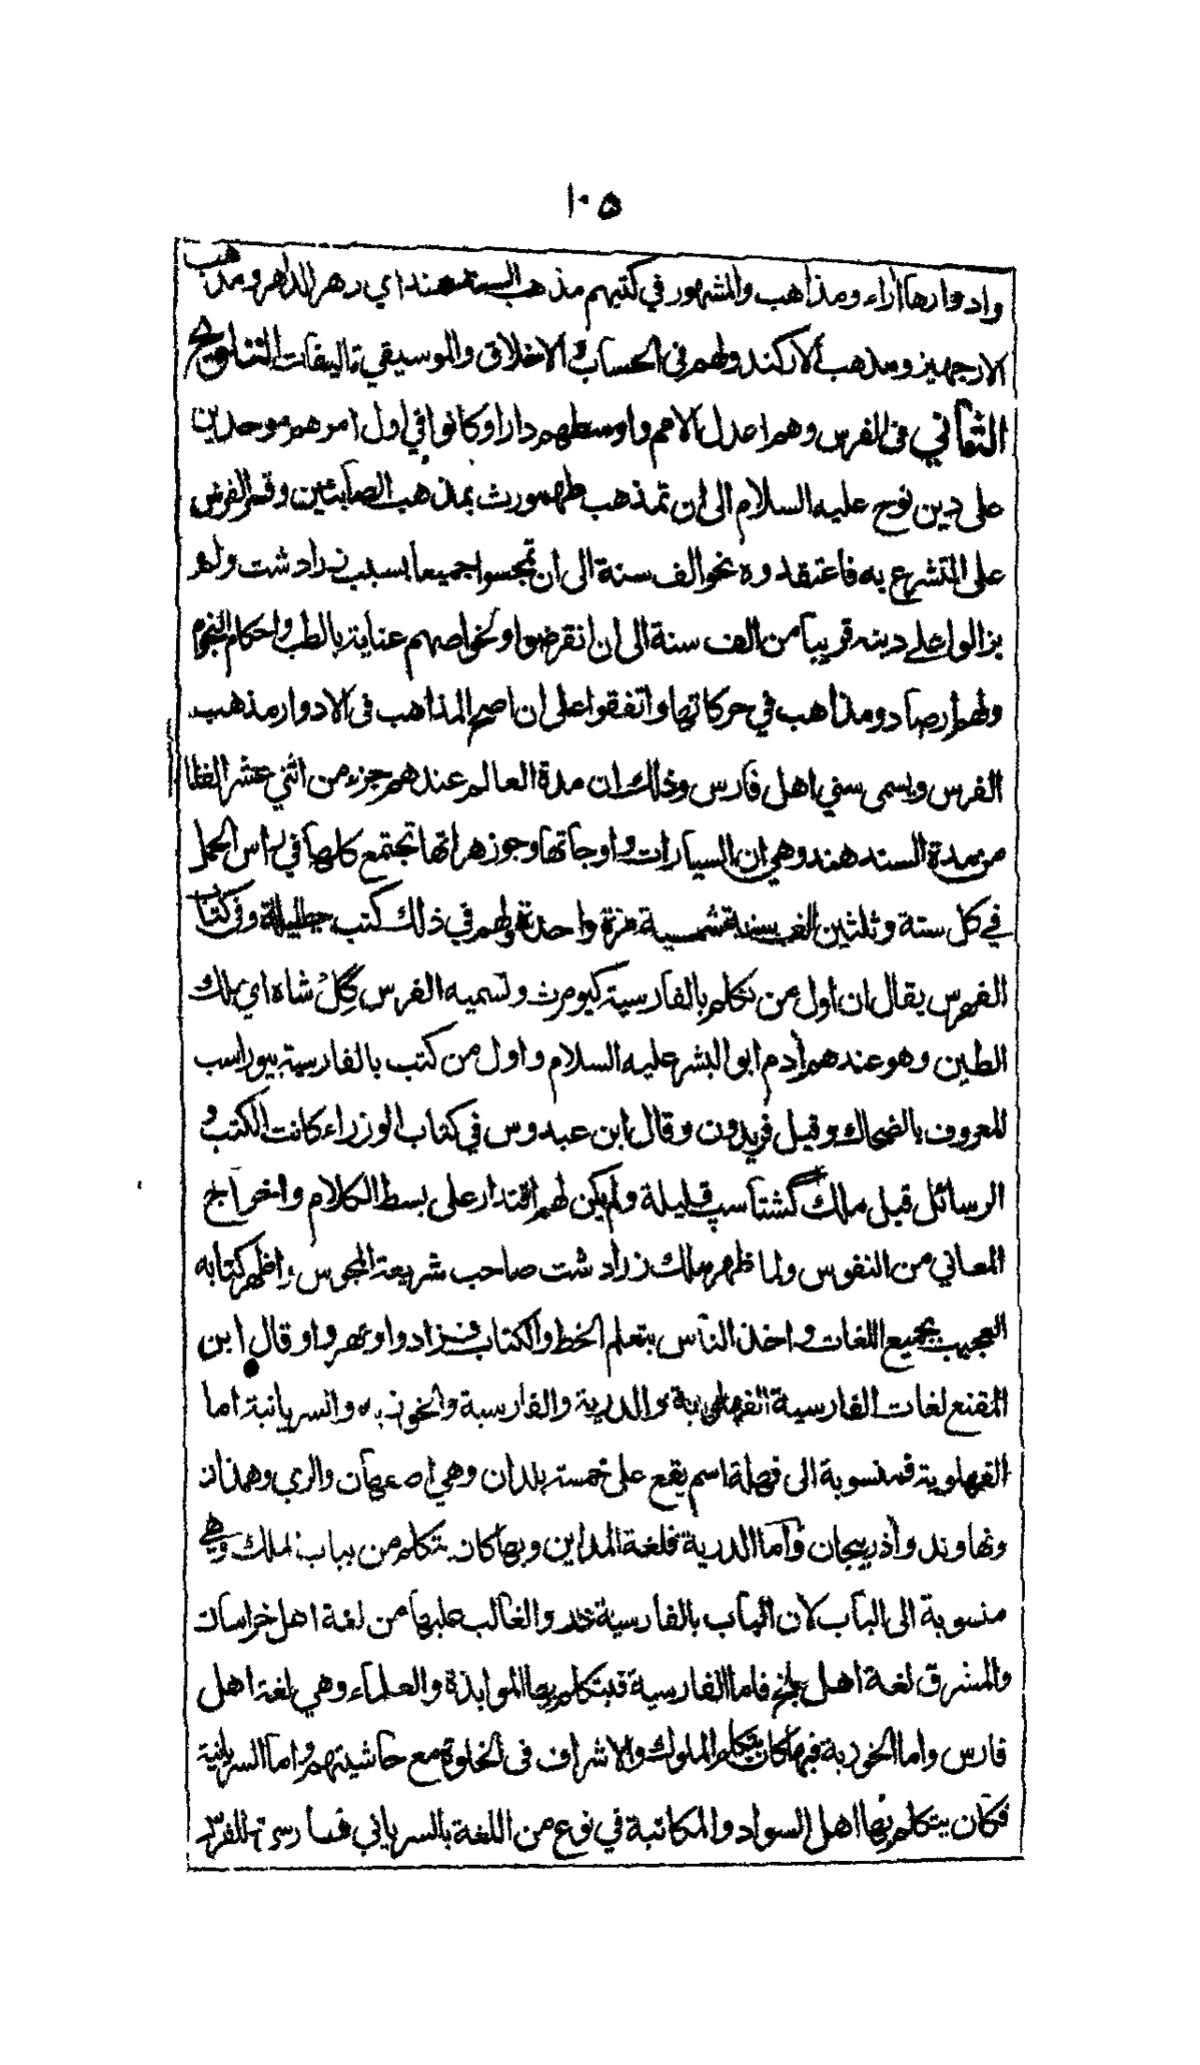 ١٠٥
وادوارها اراء ومذاهب والمشهور في كتبهم مذهب السند هند اي دهر الداهر ومذهب
الارجهيز ومذهب الاركند ولهم في الحساب و الاخلاق والموسيقي تاليفات التلويح
الثاني في الفرس وهم اعدل الامم واوسطهم دارا وكانوا في اول امرهم موحدين
على دين نوح عليه السلام الى ان تمذهب طهمورث بمذهب الصابئين وقسر الفرس
على التشرع به فاعتقدوه نحو الف سنة الى ان تمجسوا جميعا بسبب زرادشت ولم
يزالوا على دينه قريبا من الف سنة الى ان انقرضوا ولخواصهم عناية بالطب واحكام النجوم
ولهم ارصاد ومذاهب في حركاتها واتفقوا على ان اصح المذاهب في الادوار مذهب
الفرس ويسمى سني اهل فارس وذلك ان مدة العالم عندهم جزء من اثني عشر الفا
من مدة السند هند وهي ان السيارات و اوجاتها وجوزهراتها تجتمع كلها في راس الحمل
في كل ستة وثلثين الف سنة شمسية مرة واحدة ولهم في ذلك كتب جليلة وفي كتاب
الفهرس يقال ان اول من تكلم بالفارسية كيومرث وتسميه الفرس گل شاه اي ملك
الطين وهو عندهم آدم ابو البشر عليه السلام واول من كتب بالفارسية بيوراسب
المعروف بالضحاك وقيل فريدون وقال ابن عبدوس في كتاب الوزراء كانت الكتب و
الرسائل قبل ملك گشتاسپ قليلة ولم يكن لهم اقتدار على بسط الكلام واخراج
المعاني من النفوس ولما ظهر ملك زرادشت صاحب شريعة المجوس واظهر كتابه
العجيب بجميع اللغات و اخذ الناس بتعلم الخط والكتاب فزادوا ومهروا وقال ابن
المقنع لغات الفارسية الفهلوية والدرية والفارسية والخوزيه والسريانية اما
الفهلوية فمنسوبة الى فهلة اسم يقع على خمسة بلدان وهي اصبهان والري وهمدان
ونهاوند وآذربيجان واما الدرية فلغة المداين وبها كان يتكلم من بباب الملك وهي
منسوبة الى الباب لان الباب بالفارسية در والغالب عليها من لغة اهل خراسان
والمشرق لغة اهل بلخ فاما الفارسية فيتكلم بها الموابذة والعلماء وهي لغة اهل
فارس واما الخوزية فبها كان يتكلم الملوك والاشراف في الخلوة مع حاشيتهم واما السريانية
فكان يتكلم بها اهل السواد والمكاتبة في نوع من اللغة بالسرياني فارسي وللفرس